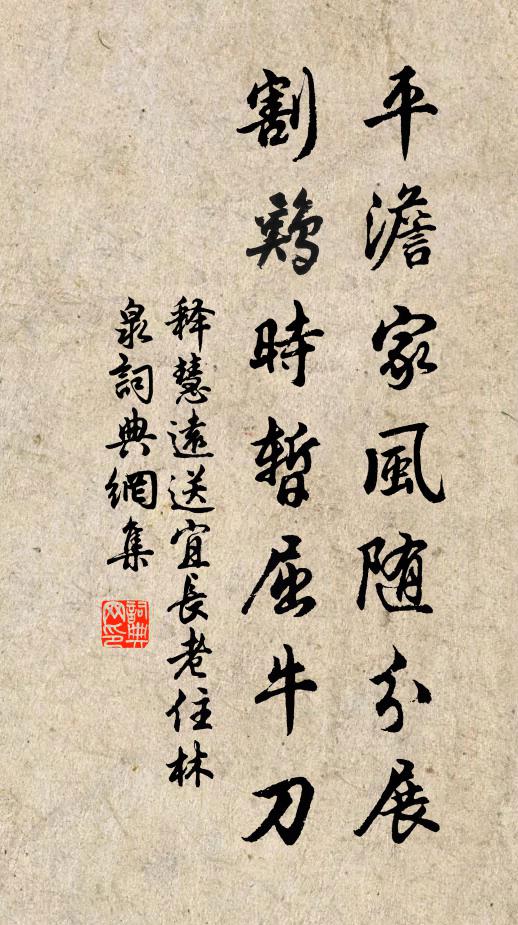 平澹家風随分展
割鷄時暫屈牛刀
释慧遠送宜長老住林
泉詞典網集
詞典网印